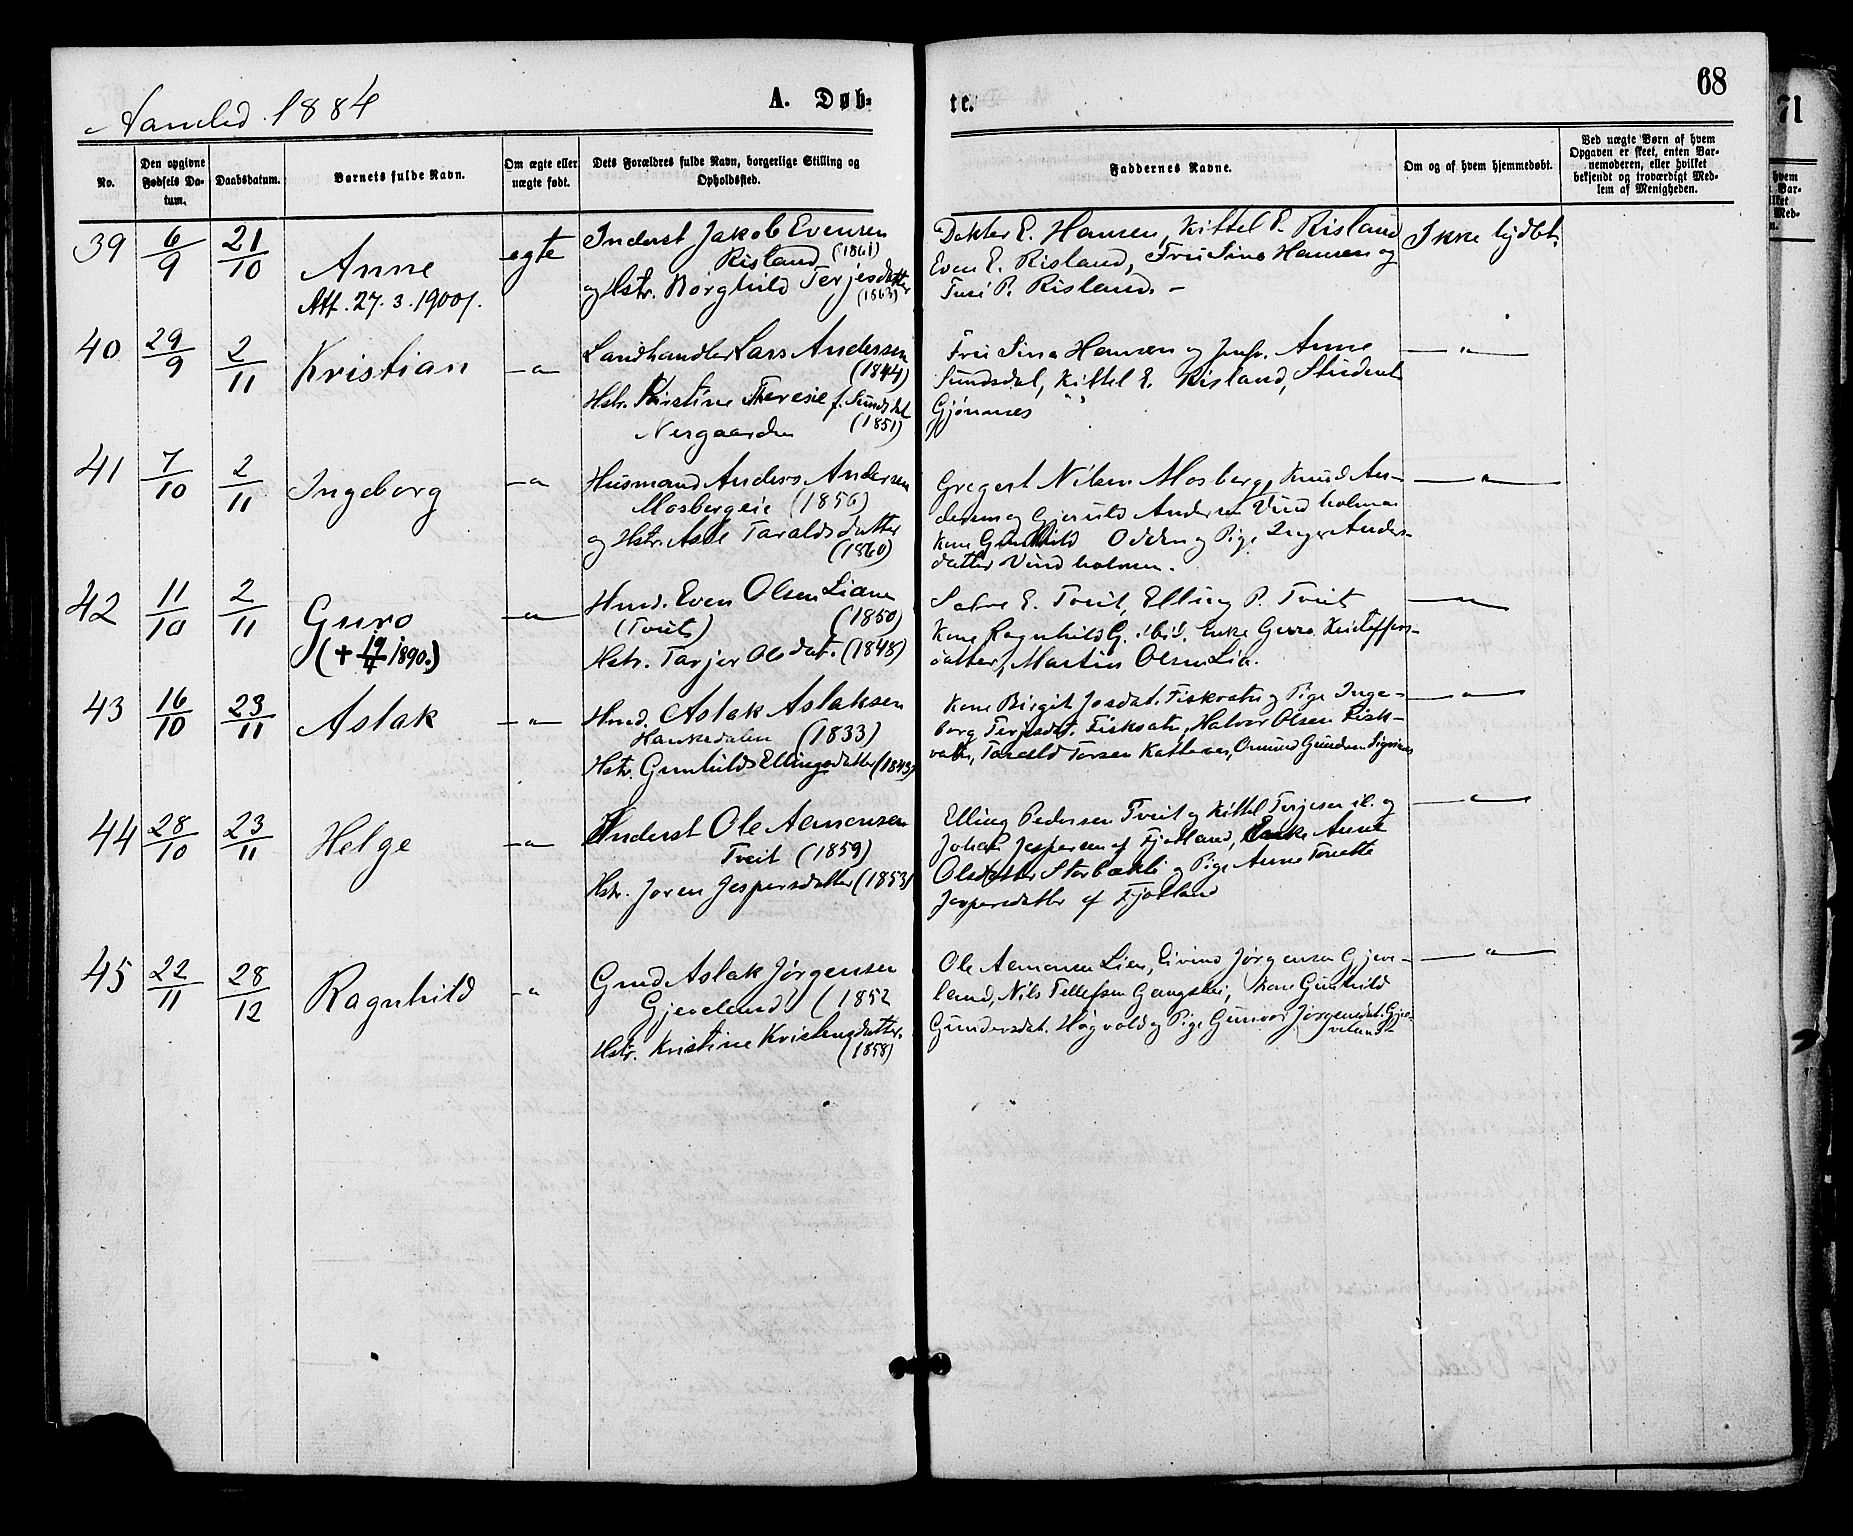 Aamlid. 1884
A. Døb-
te.
68
71
No.
Den opgivne Fødsels Da-tum.
Daabsdatum.
Barnets fulde Navn.
Om ægte eller uægte født.
Dets Forældres fulde Navn, borgerlige Stilling og Opholdssted.
Faddernes Navne.
Om og af hvem hjemmedøbt.
Ved uægte Børn af hvem Opgaven er skeet, enten Bar-nemoderen, eller hvilket bekjendt og troværdigt Med-lem af Menigheden.
39 6/9 21/10 Anne
Att. 27.3.1900
egte
Inderst Jakob Evensen
Risland (1861)
og Hstr. Borghild Terjesdatter
(1863)
Dokter E. Hansen, Kittel E. Risland
Even E. Risland, Fru Sina Hansen og
P. Risland. -
Ikke hjdbt.
40 29/9 2/11 Kristian
-"-
Landhandler Lars Andersen
(1844)
Hstr. Kirstine Theresie f. Sundsdal
Nergaarden (1851)
Fru Sina Hansen og Jmfr. Anne
Sundsdal, Kittel E. Risland, Student
Gjønnes
-"-
41 7/10 2/11 Ingeborg
-"-
Husmand Anders Andersen
Mosbergeie (1856)
og Hstr. Aase Taraldsdatter
(1860)
Gregert Nilsen Mosberg, Knud An-
dersen og Gjeruld Andersen Vindholmen
Kone Gunhild Odden og Pige Inger Anders-
datter Vindholmen.
-"-
42 11/10 2/11 Guro
(+ 19/4 1890.)
-"-
Hmd. Even Olsen Liane
(Tveit) (1850)
Hstr. Tarjer Olsdat. (1848)
Salve E. Tveit, Elling P. Tveit
Kone Ragnhild G. ibid. Enke Guro Kristoffers-
datter, Martin Olsen Lia.
-"-
43 16/10 23/11 Aslak
-"-
Hmd. Aslak Aslaksen
Hankedalen (1833)
Hstr. Gunhild Ellingsdatter (1843)
Kone Birgit Josdat. Fiskvatn og Pige Inge-
borg Terjesdat. Fiskvatn, Halvor Olsen Fisk-
vatn, Tarald Torsen Katteraas, Omund Gundersen
-"-
44 28/10 23/11 Helge
-"-
Inderst Ole Aamonsen
Tveit (1859)
Hstr. Joren Jespersdatter (1853)
Elling Pedersen Tveit og Kittel Terjesen ib. og
Johan Jespersen af Fjotland, Enke Anne
Olsdatter Storbækli og Pige Anne Tonette
Jespersdatter af Fjotland
-"-
45 22/11 28/12 Ragnhild
-"
Gmd Aslak Jørgensen
Gjeveland (1852
Hstr. Kristine Kristensdatter.
(1858)
Ole Aamonsen Lien, Eivind Jørgensen Gjeve-
land, Nils Tellefsen Gangsei, Kone Gunhild
Gundersdat. Høgvold og Pige Gunvor Jørgensdat. Gje-
veland-
-"-